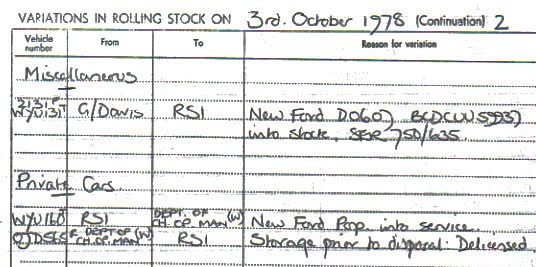 VARIATIONS IN ROLLING STOCK ON 3rd. October 1978 (Continuation) 2
Vehicle number From To Reason for variation
Miscellaneous
2131F
WYV131T G/Davis RS1 New Ford D0607
into stock. 750/635.
Private Cars
RS1 DEPT. OF CH. OP. MAN (W) New Ford Pop. into service.
DEPT OF CH. OP. MAN (W) RS1 Storage prior to disposal. Delicensed.